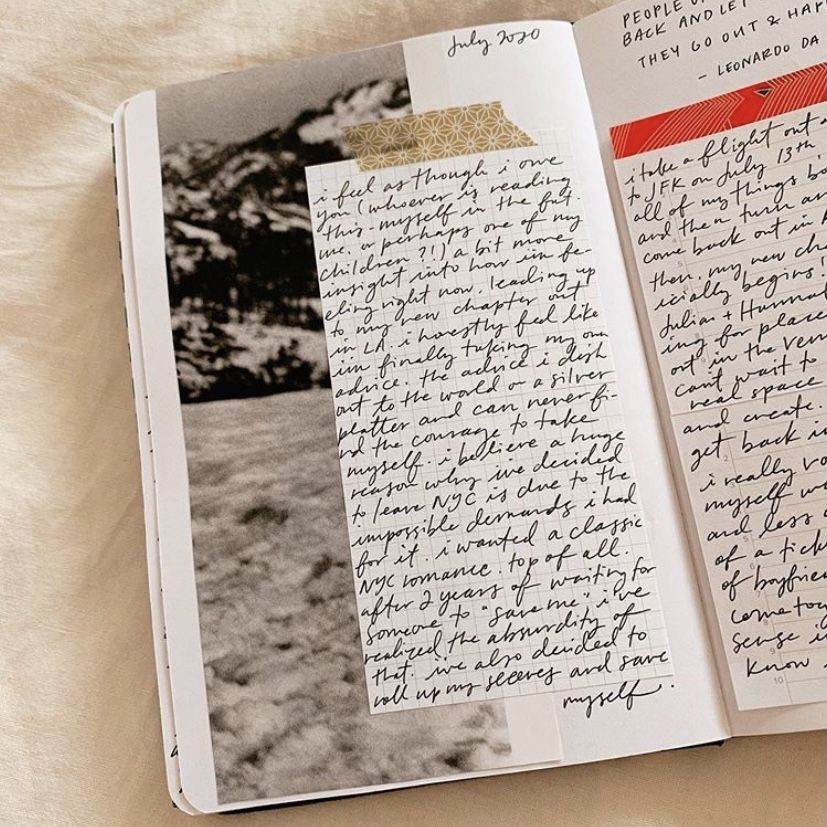 July 2020
i feel as though i owe
you (whoever is reading
this - myself in the fut.
ure. or perhaps one of my
children?!) a bit more
insight into how iim fe-
eling right now. leading up
to my new chapter out
in LA. i honestly feel like
iim finally taking my own
advice. the advice i dish
out to the world on a silver
platter and can never fi-
nd the courage to take
myself. i believe a huge
reason why ive decided
to leave NYC is due to the
impossible demands i had
for it. i wanted a classic
NYC romance. top of all.
after 2 years of waiting for
someone to "save me" i've
realized the absurdity of
that. ive also decided to
roll up my sleeves and save
myself.
PEOPLE
BACK AND LET
THEY GO OUT & HAP
- LEONARDO DA
i take a flight out
to JFK on July 13th
all of my things
and then turn
come back out in
then. my new
icially begins!
Julian + Hannah
ing for place
out in the
cant wait to
real space
and create.
get back
i really
myself
and less
of a
of boyfrie
come
sense
know